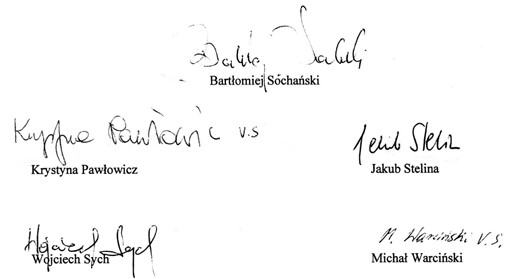 Bartłomiej Sochański
Krystyna Pawłowicz v.s
Krystyna Pawłowicz
Jakub Stelina
Jakub Stelina
Wojciech Sych
Wojciech Sych
M. Warciński V.S.
Michał Warciński